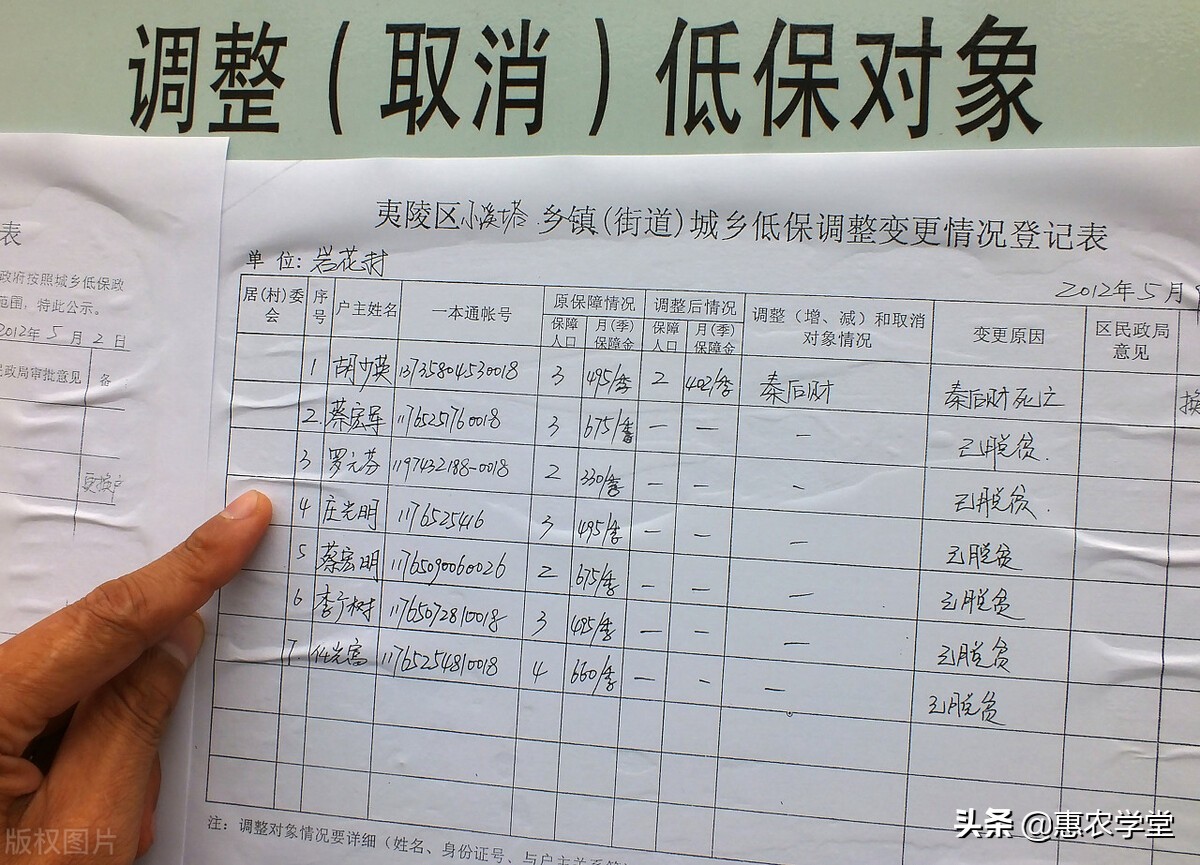 调整（取消）低保对象
表
政府按照城乡低保政
范围，特此公示。
2012年5月2日
民政局审批意见 备
更换户
夷陵区小溪塔乡镇(街道)城乡低保调整变更情况登记表
单 位：岩花村
2012年5月
居(村)委会 序号 户主姓名 一本通帐号 原保障情况 调整后情况 调整（增、减）和取消对象情况 变更原因 区民政局意见
保障人口 月(季)保障金 保障人口 月(季)保障金
1 胡少英 3 495/季 2 402/季 秦后财 秦后财死亡
2. 蔡宏军 11765251760018 3 675/季 — — — 已脱贫.
3 罗元芬 1197432188-0018 2 330/季 — — - 已脱贫.
4 庄光明 1176525416 3 495/季 — - — 已脱贫
5 蔡宏明 1176509060026 2 675/季 — - — 已脱贫
6 李广树 11765072810018 3 495/季 — — — 已脱贫
7. 任光富 11765254810018 4 660/季 — - — 已脱贫
注：调整对象情况要详细（姓名、身份证号、与户主关系等
版权图片
头条 @惠农学堂